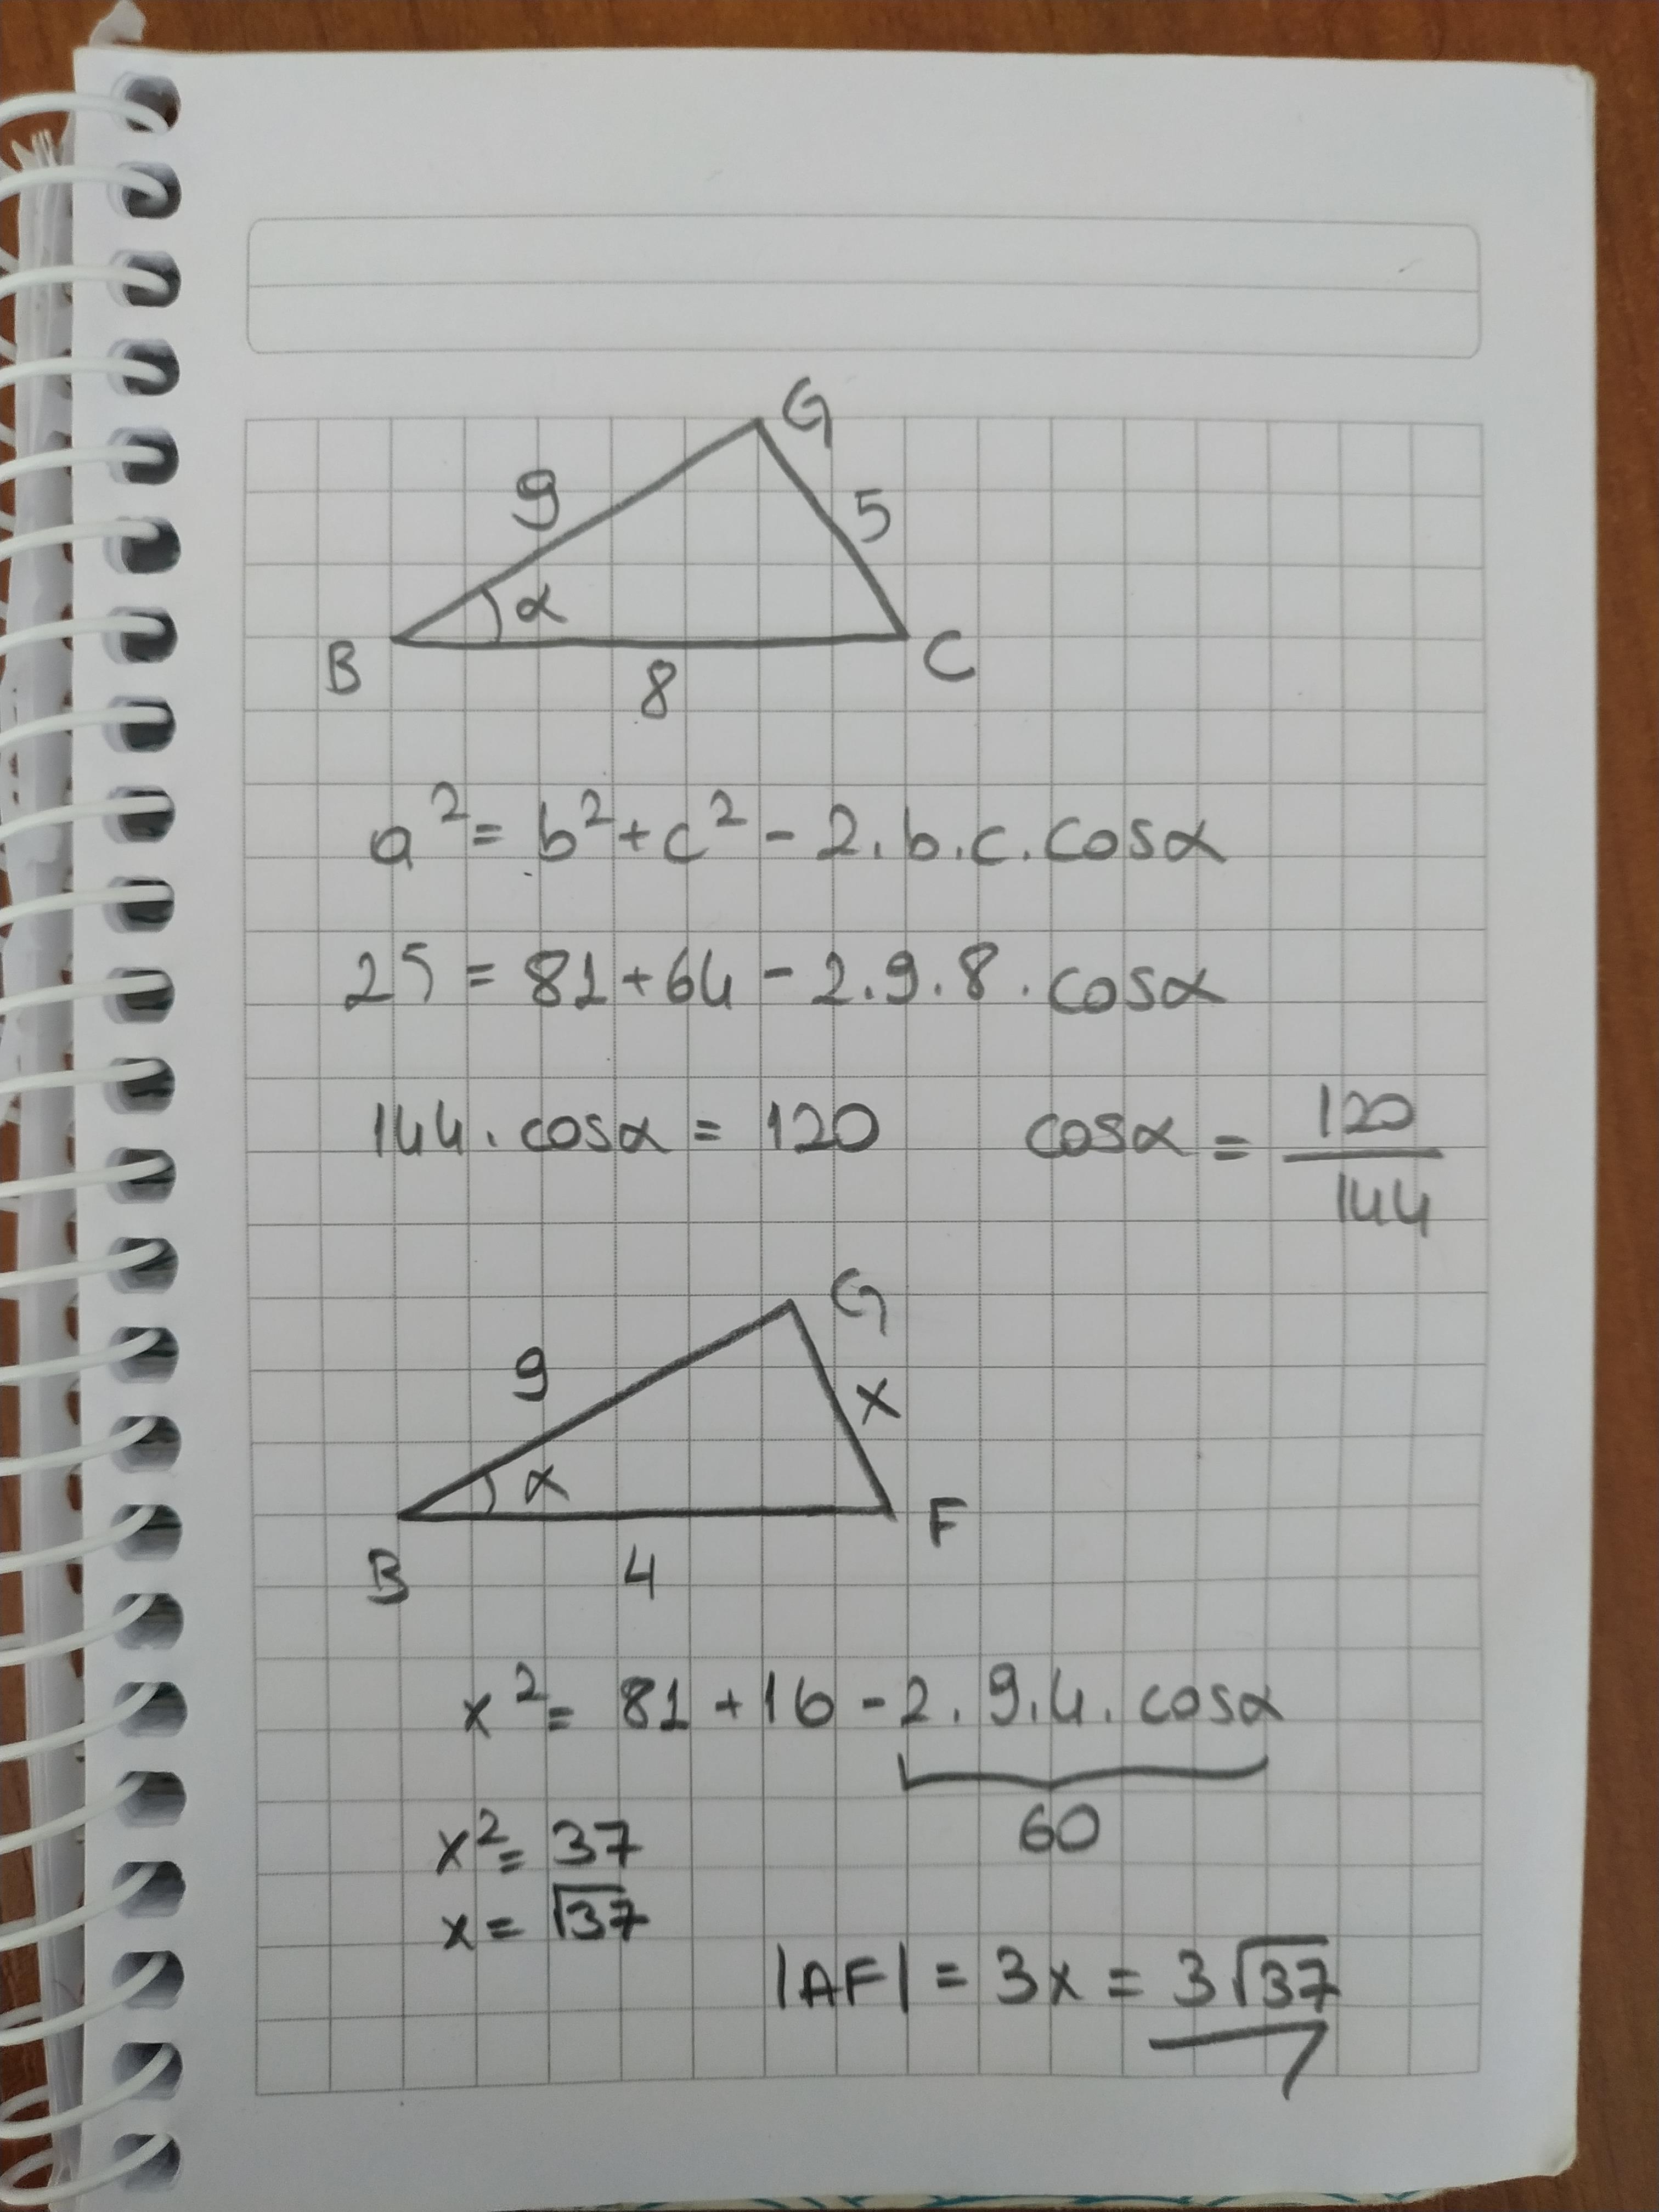 G
9
5
α
B
8
C
a² = b² + c² - 2.b.c.cosα
25 = 81 + 64 - 2.9.8.cosα
144.cosα = 120 cosα = 120/144
G
9
x
α
B
4
F
x² = 81 + 16 - 2.9.4.cosα
60
x² = 37
x = √37
|AF| = 3x = 3√37